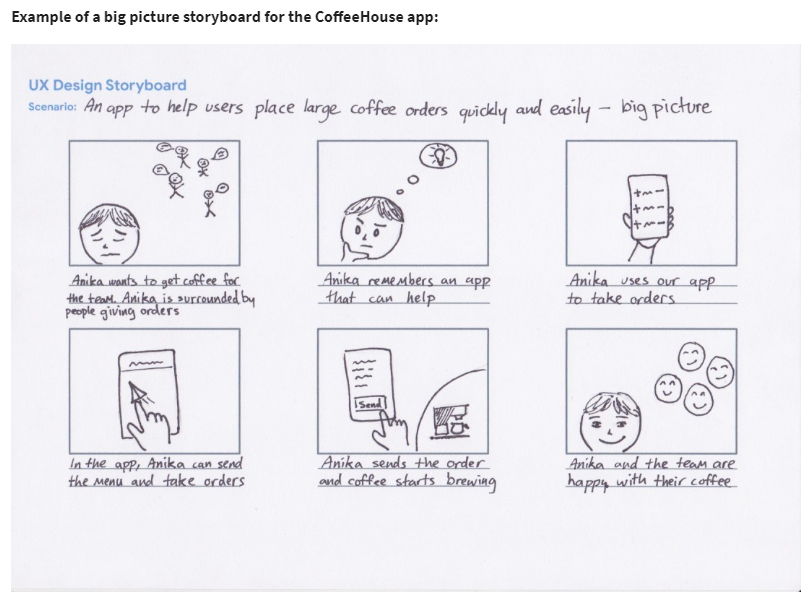 Example of a big picture storyboard for the CoffeeHouse app:
UX Design Storyboard
Scenario: An app to help users place large coffee orders quickly and easily – big picture
Anika wants to get coffee for
the team. Anika is surrounded by
people giving orders
Anika remembers an app
that can help
Anika uses our app
to take orders
Send
In the app, Anika can send
the menu and take orders
Anika sends the order
and coffee starts brewing
Anika and the team are
happy with their coffee